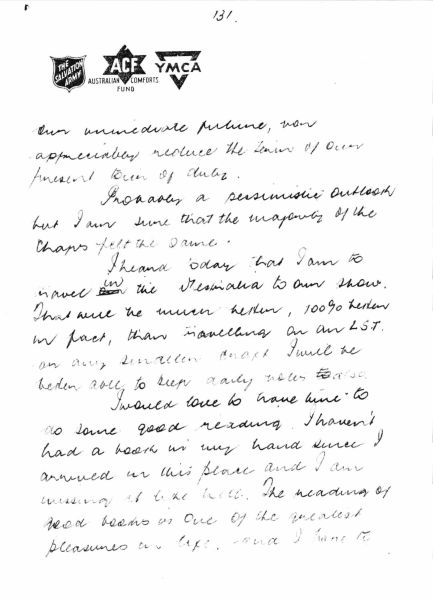 131.
THE SALVATION ARMY
ACF
AUSTRALIAN COMFORTS FUND
YMCA
our immediate future, nor
appreciably reduce the term of our
present tour of duty.
Probably a pessimistic outlook
but I am sure that the majority of the
chaps felt the same.
I heard today that I am to
travel in the Westralia to our show.
That will be much better, 100% better
in fact, than travelling on an LST.
or any smaller craft I will be
better able to keep daily notes also.
I would love to have time to
do some good reading. I haven't
had a book in my hand since I
arrived in this place and I am
missing it like hell. The reading of
good books is one of the greatest
pleasures in life, and I have to